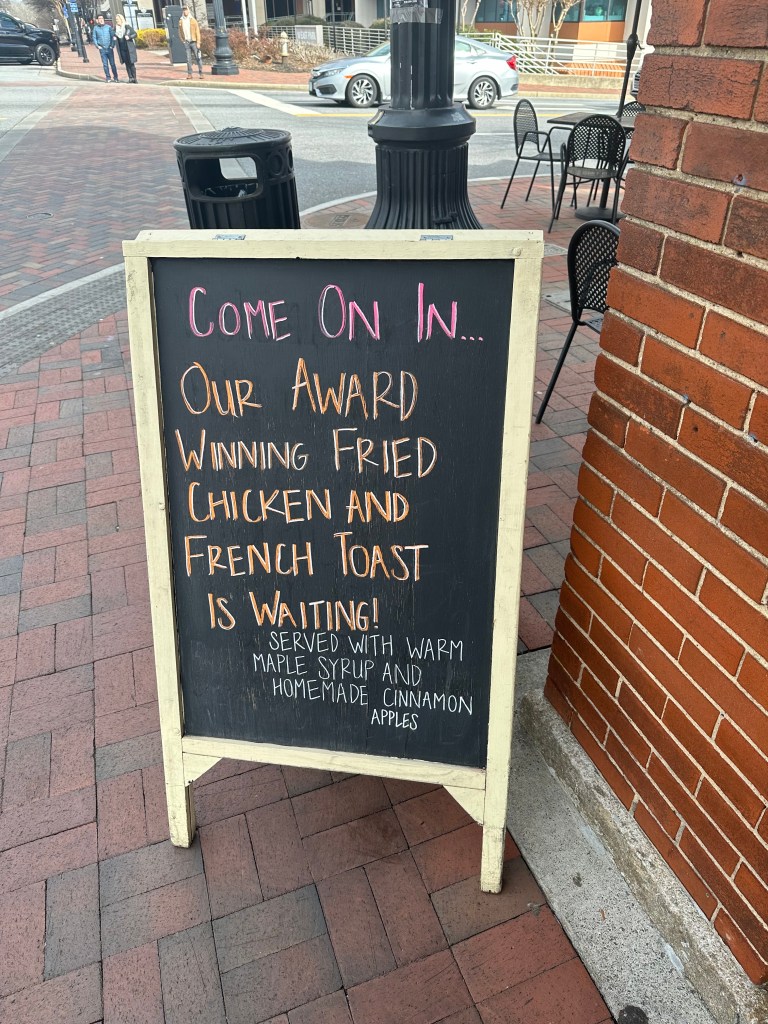 COME ON IN...
OUR AWARD
WINNING FRIED
CHICKEN AND
FRENCH TOAST
IS WAITING!
SERVED WITH WARM
MAPLE SYRUP AND
HOMEMADE CINNAMON
APPLES